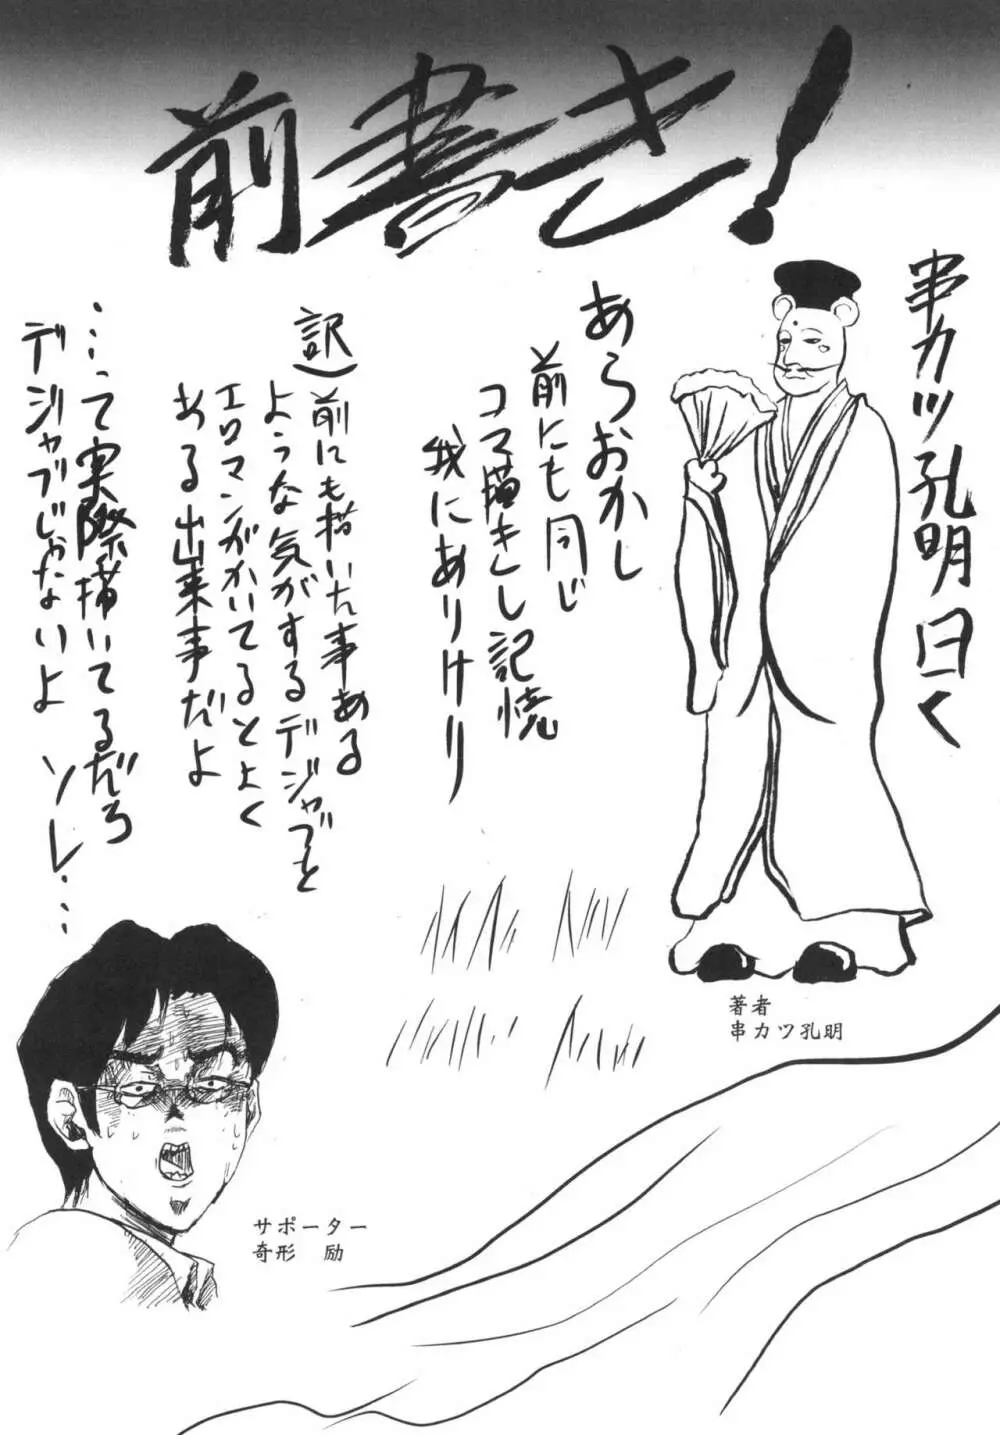 前書き!
串カツ孔明曰く
あらおかし
前にも同じ
コマ描きし記憶
我にありけり
訳)前にも描いた事ある
ような気がするデジャブと
エロマンガかいてるとよく
ある出来事だよ
・・・って実際描いてるだろ
デジャブじゃないよ ソレ・・・
著者
串カツ孔明
サポーター
奇形 励